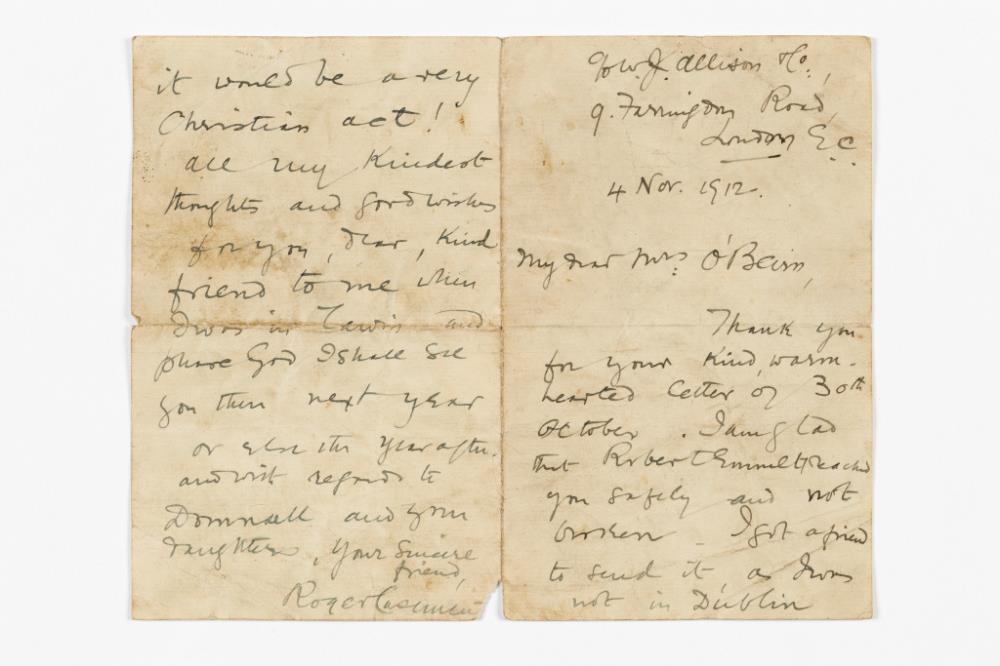 c/o W. J. Allison & Co.,
9. Farringdon Road,
London E.C.
4 Nov. 1912.
My dear Mrs O'Beirn,
Thank you
for your kind, warm-
hearted letter of 30th
October. I am glad
that Robert Emmett reached
you safely and not
broken - I got a friend
to send it, as I was
not in Dublin
it would be a very
Christian act!
All my kindest
thoughts and good wishes
for you, dear, kind
friend to me when
I was in Tawin and
please God I shall see
you then next year
or else the year after.
and with regards to
Domnall and your
daughters, your sincere
friend,
Roger Casement